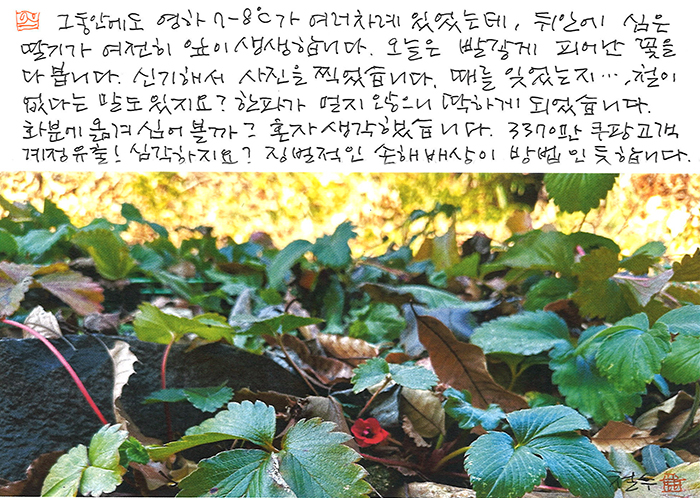 그동안에도 영하 7-8℃가 여러차례 있었는데, 뒤안에 심은
딸기가 여전히 잎이 생생합니다. 오늘은 빨갛게 피어난 꽃을
다 봅니다. 신기해서 사진을 찍었습니다. 때를 잊었는지…, 철이
없다는 말도 있지요? 한파가 멀지 않으니 딱하게 되었습니다.
화분에 옮겨 심어 볼까? 혼자 생각했습니다. 3370만 쿠팡고객
계정유출! 심각하지요? 징벌적인 손해배상이 방법인 듯합니다.
철수